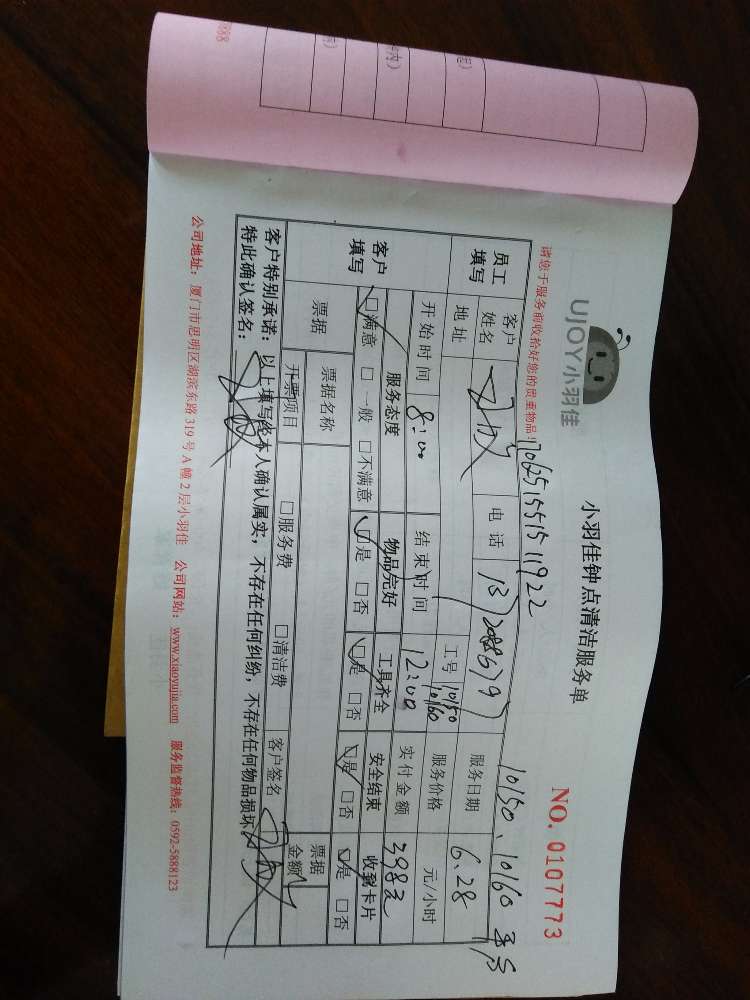 UJOY小羽佳
小羽佳钟点清洁服务单
NO. 0107773
请您于服务前收拾好您的贵重物品!
10150、10160
员工填写
客户姓名
电话
服务日期 6.28
地址
工号 10150 10160
服务价格 元/小时
开始时间 8:00
结束时间 12:00
实付金额 398元
客户填写
服务态度 物品完好 工具齐全 安全结束 收到卡片
☑满意 □一般 □不满意 ☑是 □否 ☑是 □否 ☑是 □否 ☑是 □否
票据
票据名称
票据金额
开票项目 □服务费 □清洁费
客户签名
客户特别承诺:以上填写经本人确认属实,不存在任何纠纷,不存在任何物品损坏
特此确认签名:
公司地址:厦门市思明区湖滨东路 319 号 A 幢 2 层小羽佳 公司网站:www.xiaoyujia.com 服务监督热线:0592-5888123